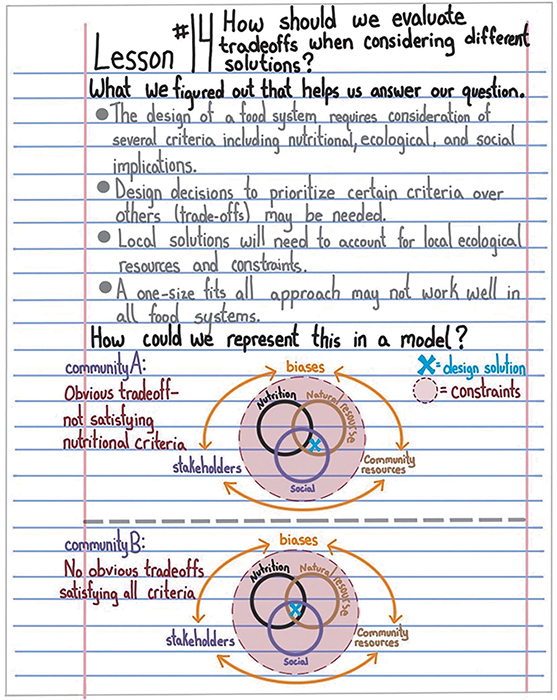 Lesson #14 How should we evaluate
tradeoffs when considering different
solutions?
What we figured out that helps us answer our question.
The design of a food system requires consideration of
several criteria including nutritional, ecological, and social
implications.
Design decisions to prioritize certain criteria over
others (trade-offs) may be needed.
Local solutions will need to account for local ecological
resources and constraints.
A one-size fits all approach may not work well in
all food systems.
How could we represent this in a model?
community A:
Obvious tradeoff-
not satisfying
nutritional criteria
biases
X = design solution
= constraints
Nutrition
Natural resourse
stakeholders
Community
resources
Social
community B:
No obvious tradeoffs
satisfying all criteria
biases
Nutrition
Natural resourse
stakeholders
Community
resources
Social